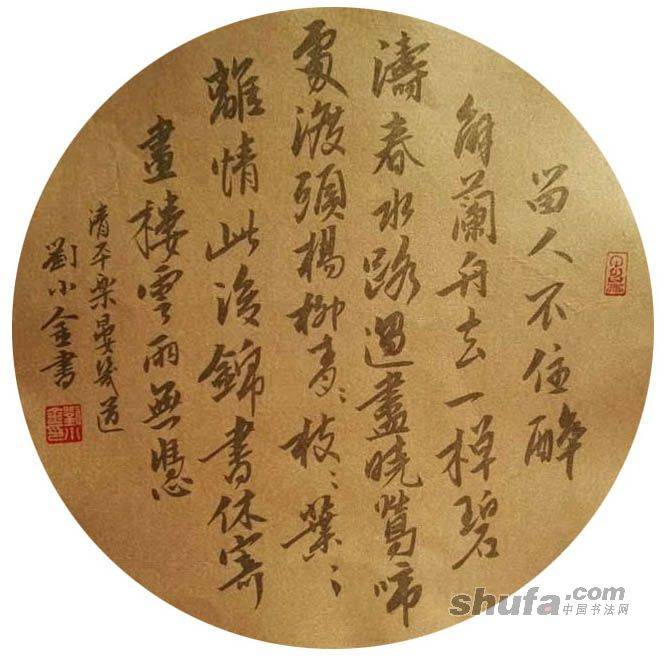 留人不住醉
解蘭舟去一棹碧
濤春水路過盡曉鶯啼
處渡頭楊柳青〻枝〻葉〻
離情此後錦書休寄
畫樓雲雨無憑
清平樂晏幾道
劉小金書
shufa.com
中国书法网